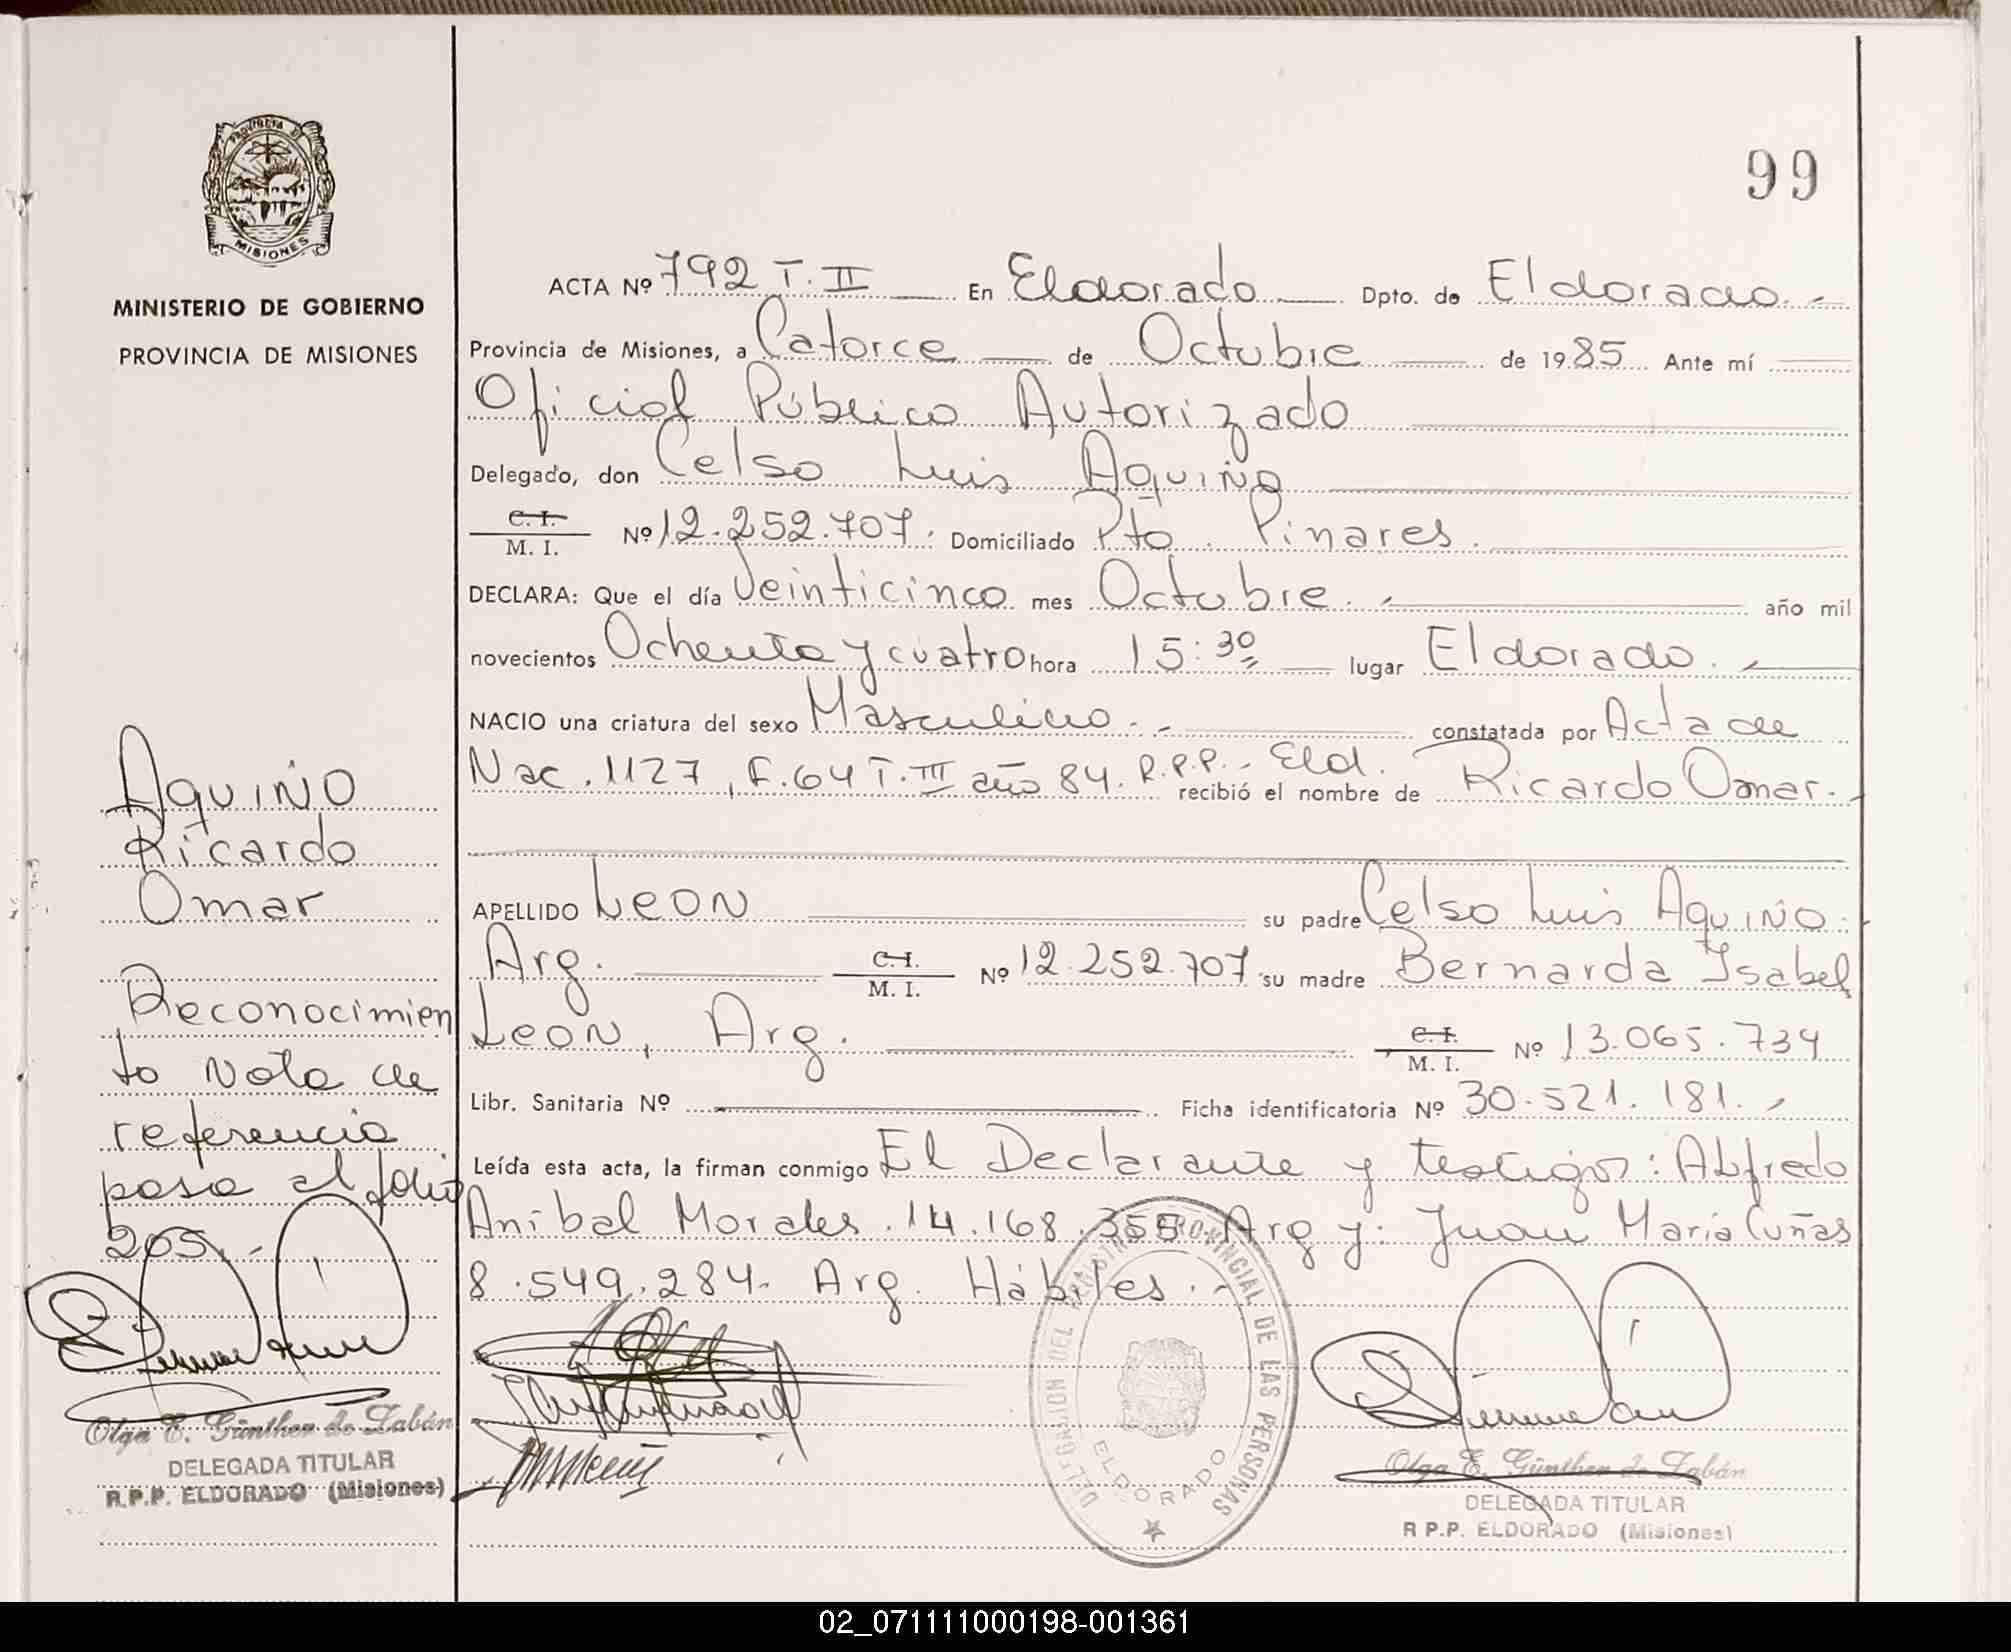 99
PROVINCIA DE
MISIONES
MINISTERIO DE GOBIERNO
PROVINCIA DE MISIONES
ACTA Nº 792 T. II En Eldorado Dpto. de Eldorado.-
Provincia de Misiones, a Catorce de Octubre de 1985 Ante mí
Oficial Público Autorizado
Delegado, don Celso Luis Aquino
C. I. / M. I. Nº 12.252.707. Domiciliado Pto. Pinares.
DECLARA: Que el día Veinticinco mes Octubre.- año mil
novecientos Ochenta y cuatro hora 15:30 lugar Eldorado.-
NACIO una criatura del sexo Masculino.- constatada por Acta de
Nac. 1127, F. 64 T. III año 84. R.P.P.- Eld. recibió el nombre de Ricardo Omar.-
APELLIDO Leon su padre Celso Luis Aquino.
Arg. C.I. / M. I. Nº 12.252.707 su madre Bernarda Isabel
Leon, Arg. C.I. / M. I. Nº 13.065.734
Libr. Sanitaria Nº Ficha identificatoria Nº 30.521.181.-
Leída esta acta, la firman conmigo El Declarante y testigos: Alfredo
Anibal Morales. 14.168.355 Arg y. Juan María Cuñas
8.549.284. Arg. Hábiles.-
Aquino
Ricardo
Omar
Reconocimien
to Nota de
referencia
pasa al folio
205.-
Olga E. Günther de Zabán
DELEGADA TITULAR
R.P.P. ELDORADO (Misiones)
DELEGACION DEL REGISTRO PROVINCIAL DE LAS PERSONAS
ELDORADO
Olga E. Günther de Zabán
DELEGADA TITULAR
R P.P. ELDORADO (Misiones)
02_071111000198-001361